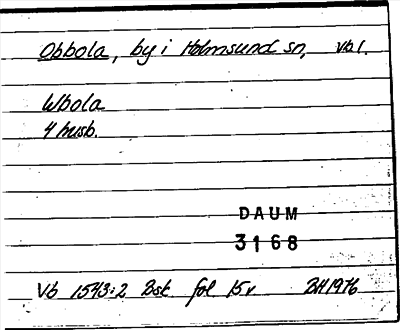 Obbola, by i Holmsund sn, Vb l.
Wbola
4 husb.
DAUM
3168
Vb 1543:2 Bsk fol 15v BH 1976